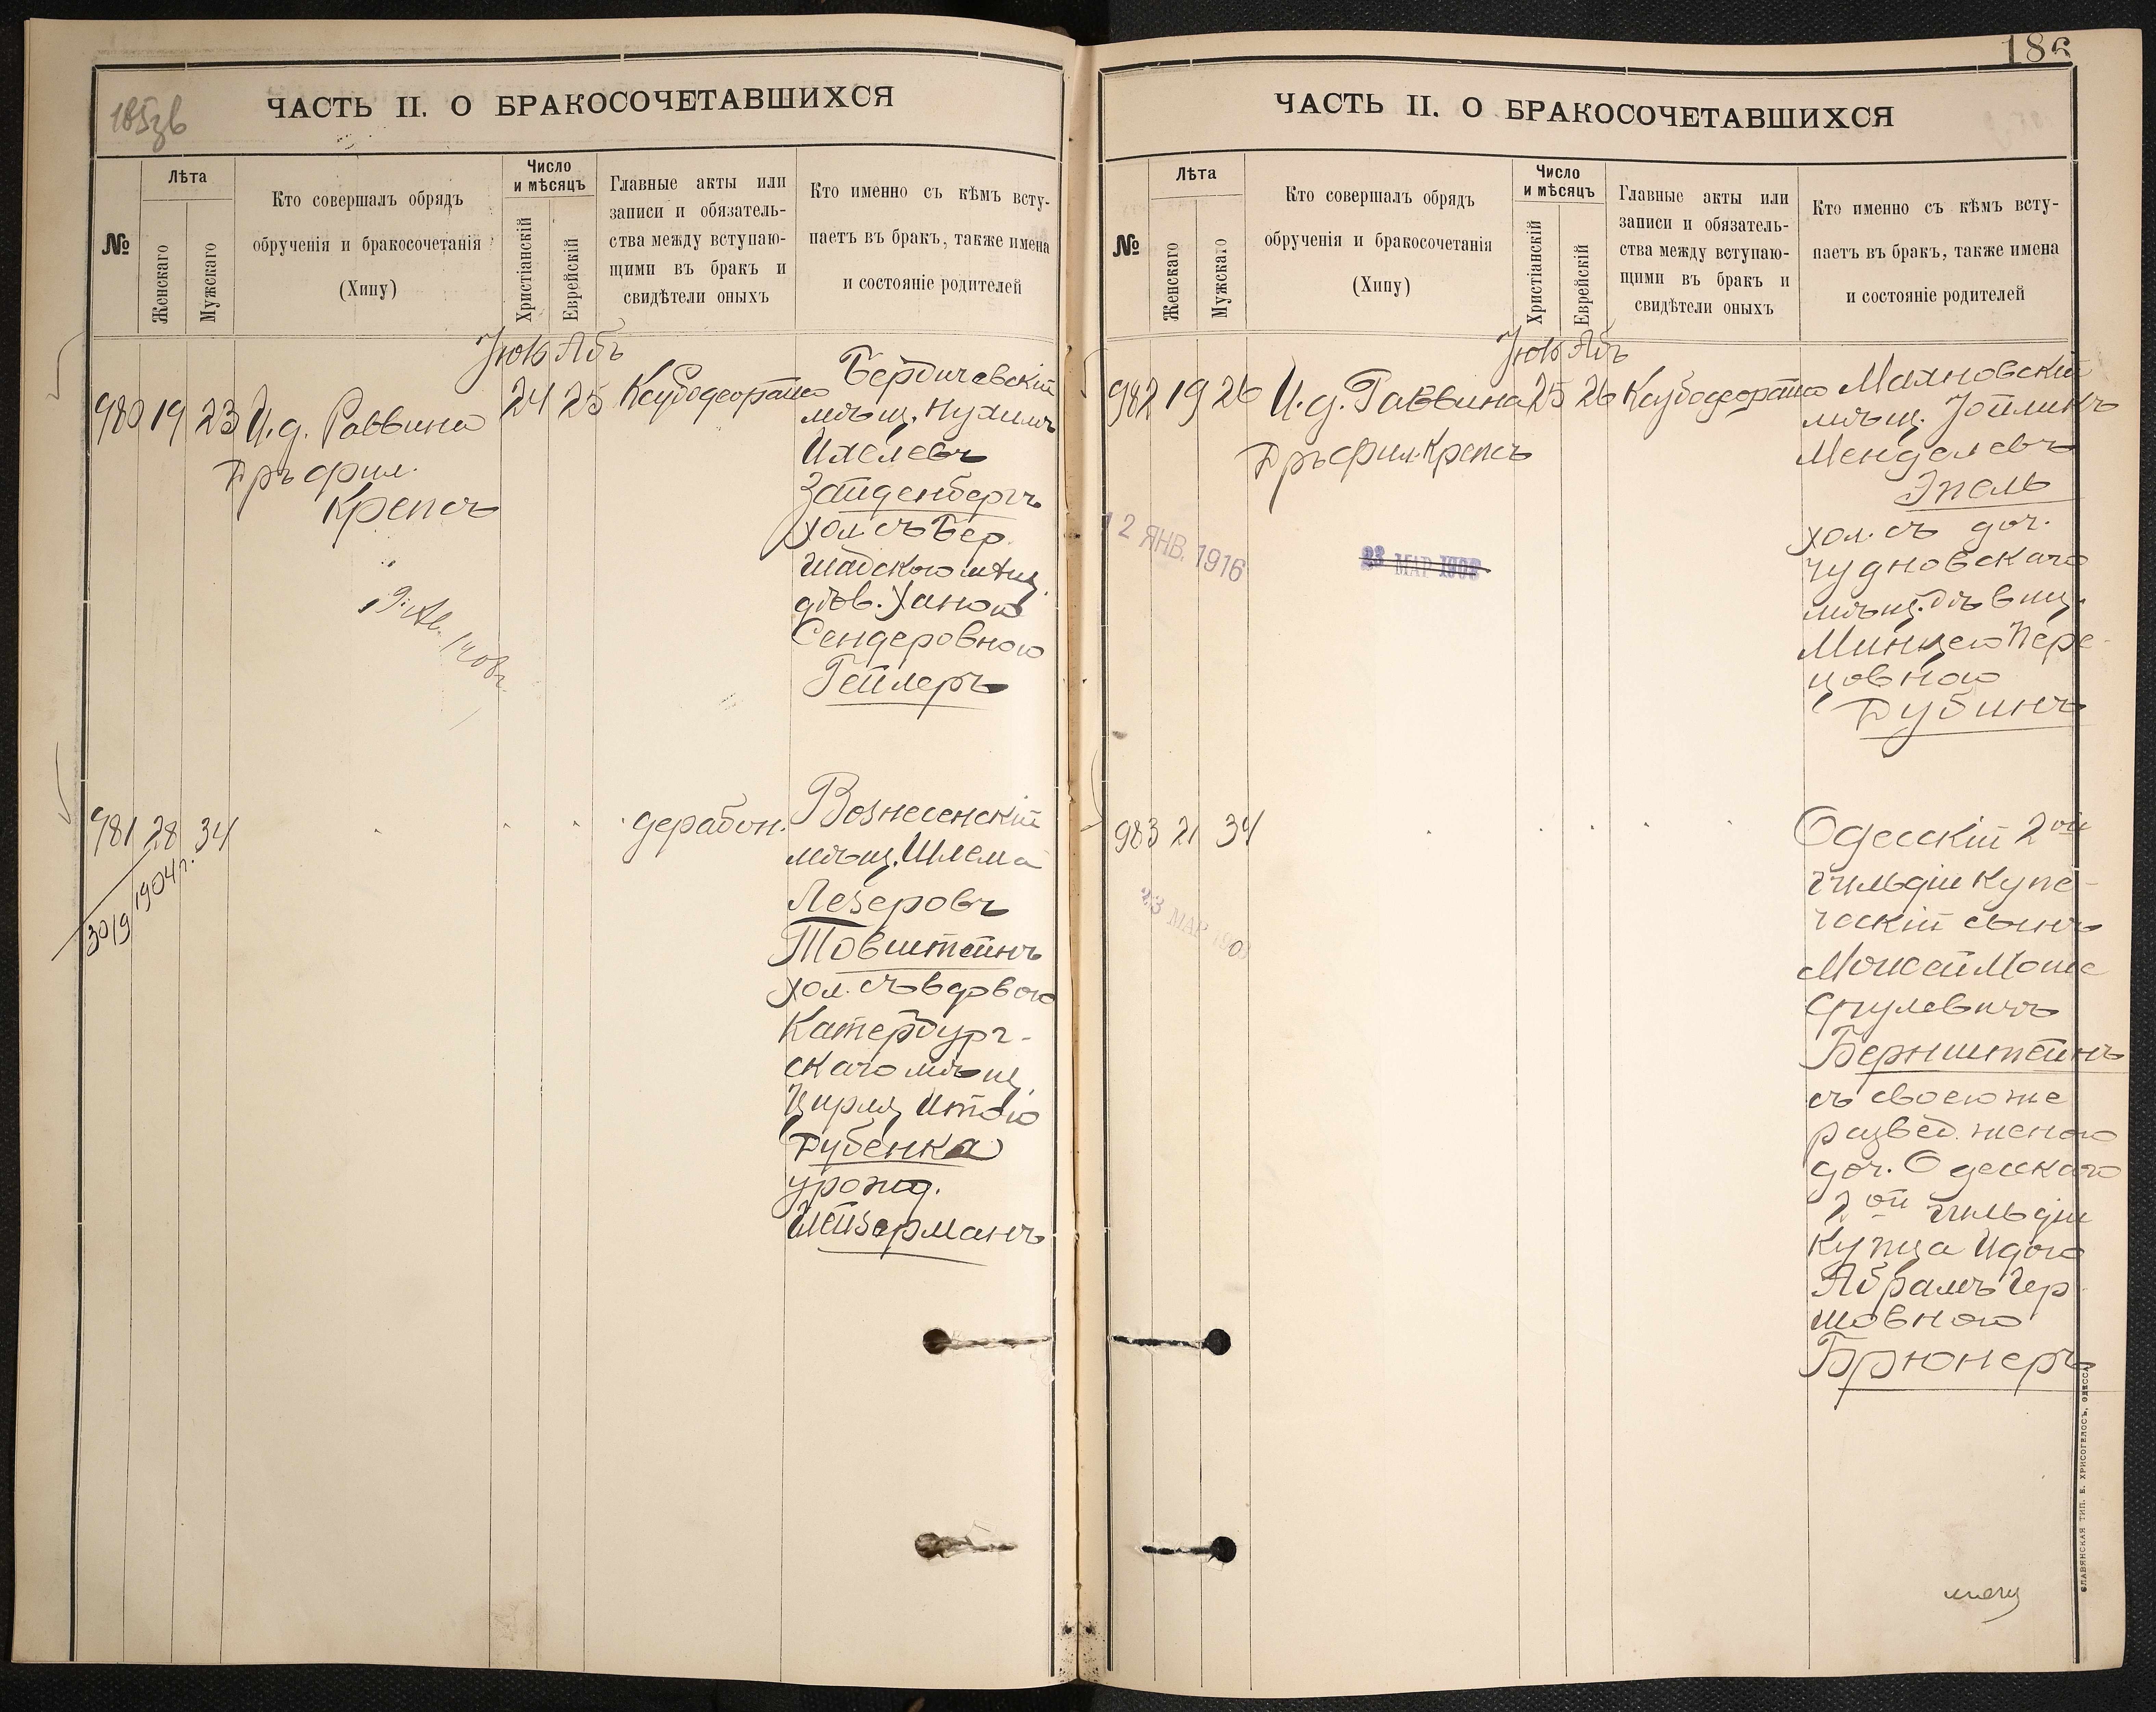 ЧАСТЬ II. О БРАКОСОЧЕТАВШИХСЯ
№
Лѣта
Женскаго
Мужскаго
Кто совершалъ обрядъ
обрученія и бракосочетанія
(Хипу)
Число
и мѣсяцъ
Христіанскій
Еврейскій
Главные акты или
записи и обязатель-
ства между вступаю-
щими въ бракъ и
свидѣтели оныхъ
Кто именно съ кѣмъ всту-
паетъ въ бракъ, также имена
и состояніе родителей
Абъ
980 19 23 И.д. Раввина 24 25
Дръ фил.
Крепсъ
Бердичевскій
мѣщ. Нухимъ
Ихелевъ
Зайденбергъ
хол. съ Бер
шадскою мѣщ.
дѣв. Ханою
Сендеровною
Гейлеръ
981 28 34
30/9 1904 г.
дерабон.
Вознесенскій
мѣщ. Шлема
Лезеровъ
Товштейнъ
хол. съ вдовою
Катербург-
скаго мѣщ.
Итою
Дубенка
урожд.
186
ЧАСТЬ II. О БРАКОСОЧЕТАВШИХСЯ
№
Лѣта
Женскаго
Мужскаго
Кто совершалъ обрядъ
обрученія и бракосочетанія
(Хипу)
Число
и мѣсяцъ
Христіанскій
Еврейскій
Главные акты или
записи и обязатель-
ства между вступаю-
щими въ бракъ и
свидѣтели оныхъ
Кто именно съ кѣмъ всту-
паетъ въ бракъ, также имена
и состояніе родителей
Абъ
982 19 26 И.д. Раввина 25 26
Дръ фил. Крепсъ
12 ЯНВ. 1916
23 МАР
Махновскій
мѣщ. Іойликъ
Менделевъ
Эпель
хол. съ доч.
чудновскаго
мѣщ. дѣвиц.
Перe-
цовною
Дубинъ
983 21 34
23 МАР
Одесскій 2ой
гильдіи купе-
ческій сынъ
Мошe
Срулевичъ
Бернштейнъ
съ своею же
развед. женою
доч. Одесскаго
2ой гильдіи
купца Идою
Абрамъ Гер
шовною
Брюнеръ
СЛАВЯНСКАЯ ТИП. Е. ХРИСОГЕЛОСЪ, ОДЕССА